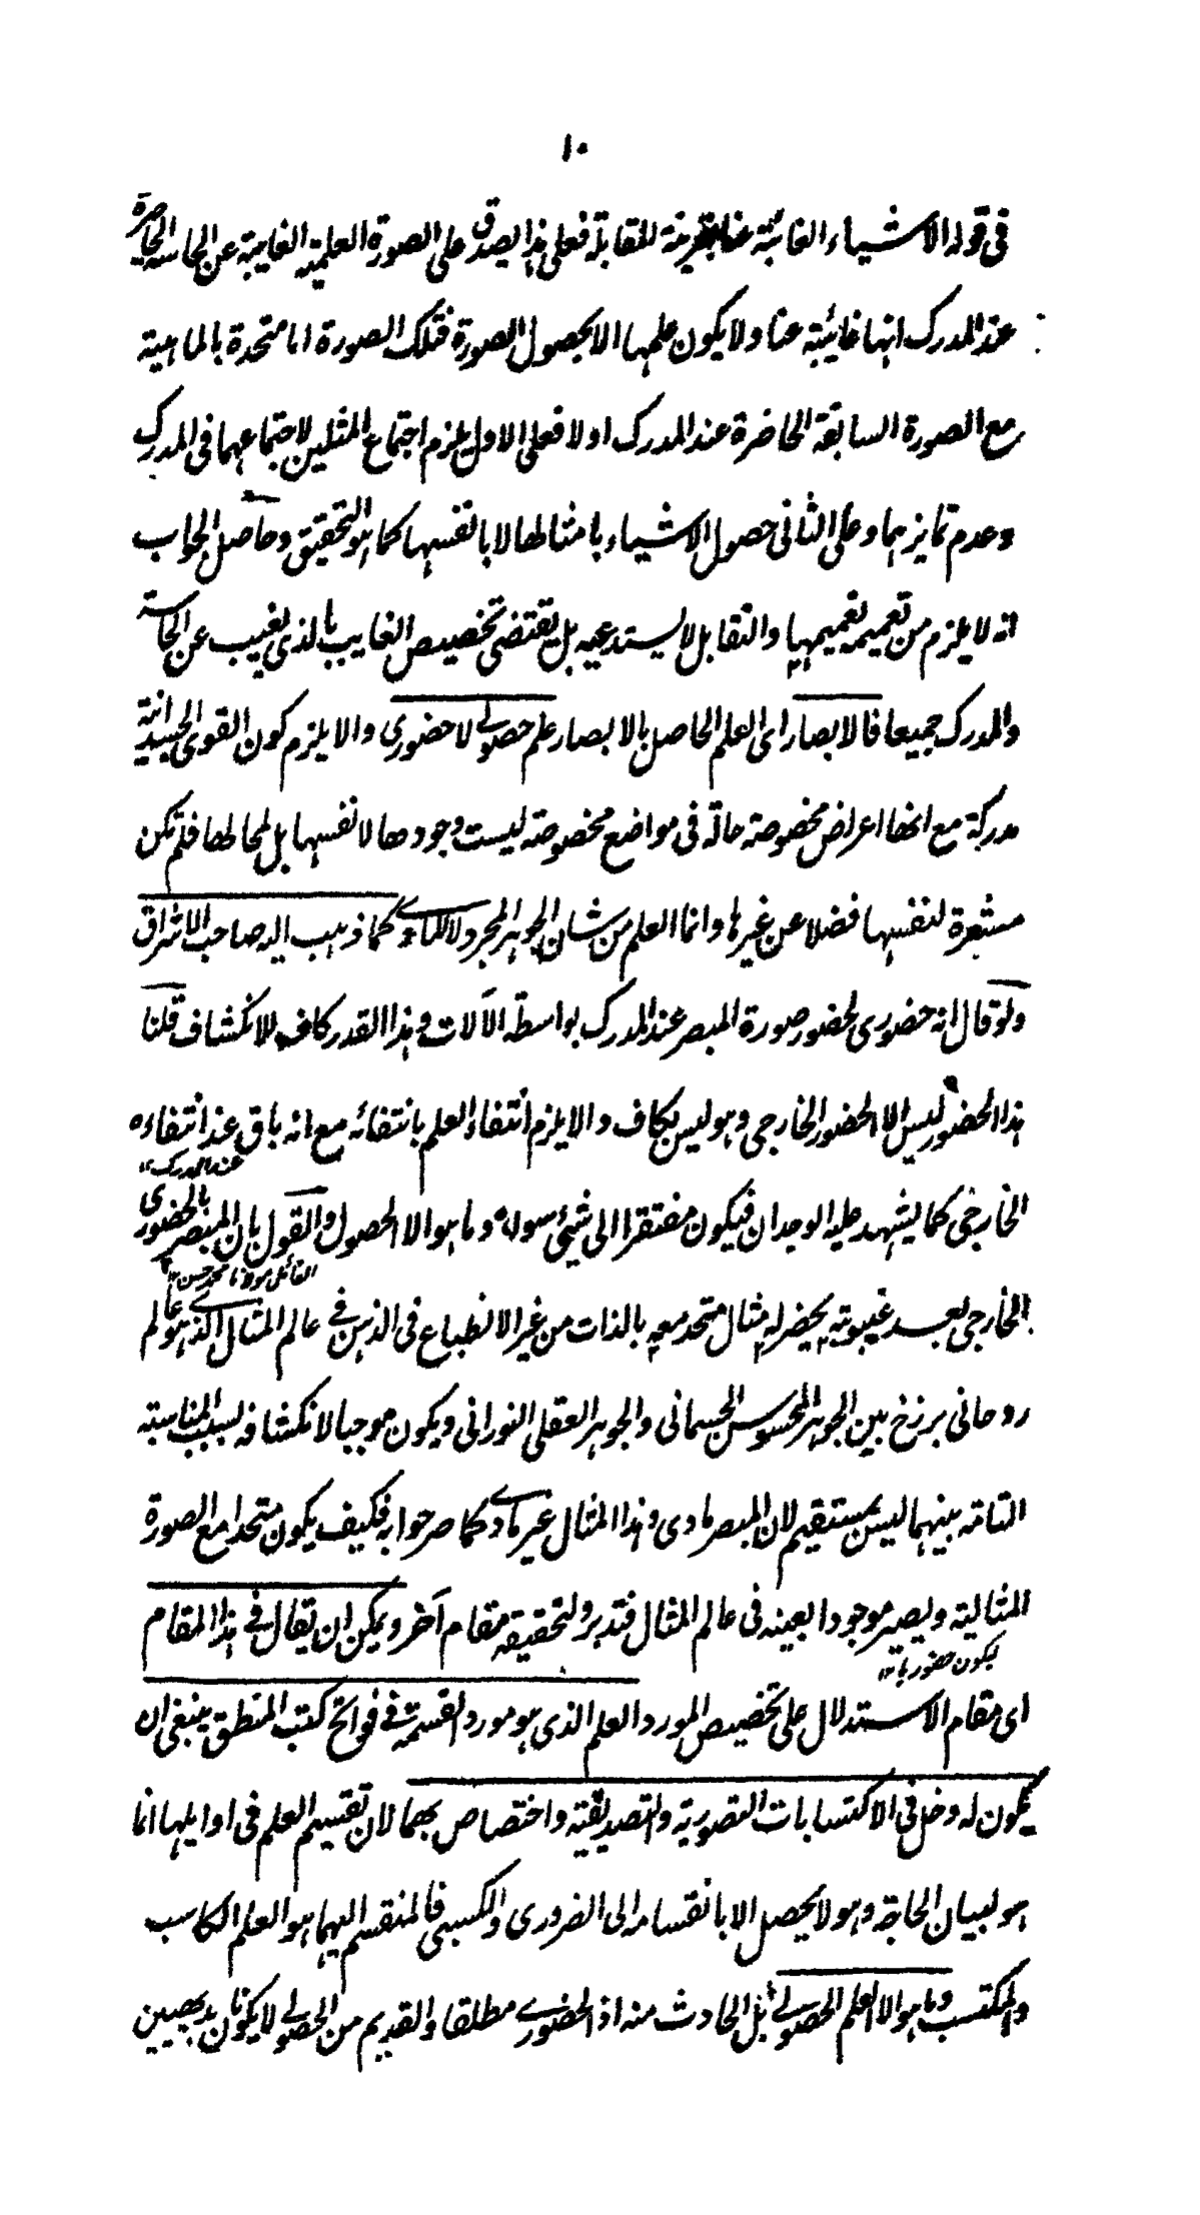 ١٠
فى قوله الاشياء الغائبة عنا بقرينة المقابلة فعلى هذا يصدق على الصورة العلمية الغايبة عن الحاسة الحاضرة
عند المدرك انها غائبة عنا ولا يكون علمها الا بحصول الصورة فتلك الصورة اما متحدة بالماهية
مع الصورة السابقة الحاضرة عند المدرك اولا فعلى الاول يلزم اجتماع المثلين لاجتماعهما فى المدرك
وعدم تمايزهما وعلى الثانى حصول الاشياء بامثالها لا بانفسها كما هو التحقيق وحاصل الجواب
انه لا يلزم من تعميمه تعميمها والتقابل لا يستدعيه بل يقتضى تخصيص الغايب بالذى يغيب عن الحاسة
والمدرك جميعا فالابصار اى العلم الحاصل بالابصار علم حصولے لا حضورى والا يلزم كون القوى الجسدانية
مدركة مع انها اعراض مخصوصة حالة فى مواضع مخصوصة ليست وجودها لانفسها بل لمحالها فلم تكن
مشعرة لنفسها فضلا عن غيرها وانما العلم من شان الجوهر المجرد لا المادے كما ذهب اليه صاحب الاشراق
ولو قال انه حضورى لحضور صورة المبصر عند المدرك بواسطة الآلات وهذا القدر كاف للانكشاف قلنا
هذا الحضور ليس الا الحضور الخارجى وهو ليس بكاف والا يلزم انتفاء العلم بانتفائه مع انه باق عند انتفاءه
عند المدرك ١٢
الخارجى كما يشهد عليه الوجدان فيكون مفتقرا الى شيئ سواه وما هو الا الحصول والقول بان المبصر بالحضورى
القائل مولانا محمد حسن ١٢
الخارجى بعد غيبوبته يحضر له مثال متحد معه بالذات من غير الانطباع فى الذهن فے عالم المثال الذے هو عالم
روحانى برزخ بين الجوهر المحسوس الجسمانى والجوهر العقلى النورانى ويكون موجبا لانكشافه بسبب المناسبة
التامة بينهما ليس بمستقيم لان المبصر مادى وهذا المثال غير مادے كما صرحوا به فكيف يكون متحدا مع الصورة
المثالية ويصير موجودا بعينه فى عالم المثال فتدبر ولتحقيقه مقام آخر ويمكن ان يقال فے هذا المقام
بكون حضوريا ١٢
اى مقام الاستدلال على تخصيص المورد العلم الذى هو مورد القسمة فے فواتح كتب المنطق ينبغى ان
يكون له دخل فى الاكتسابات التصورية والتصديقية واختصاص بهما لان تقسيم العلم فى اوايلها انما
هو لبيان الحاجة وهو لا يحصل الا بانقسامه الى الضرورى والكسبى فالمنقسم اليهما هو العلم الكاسب
والمكتسب وما هو الا العلم الحصولے بل الحادث منه اذ الحضورے مطلقا والقديم من الحصولے لا يكونان بديهيين